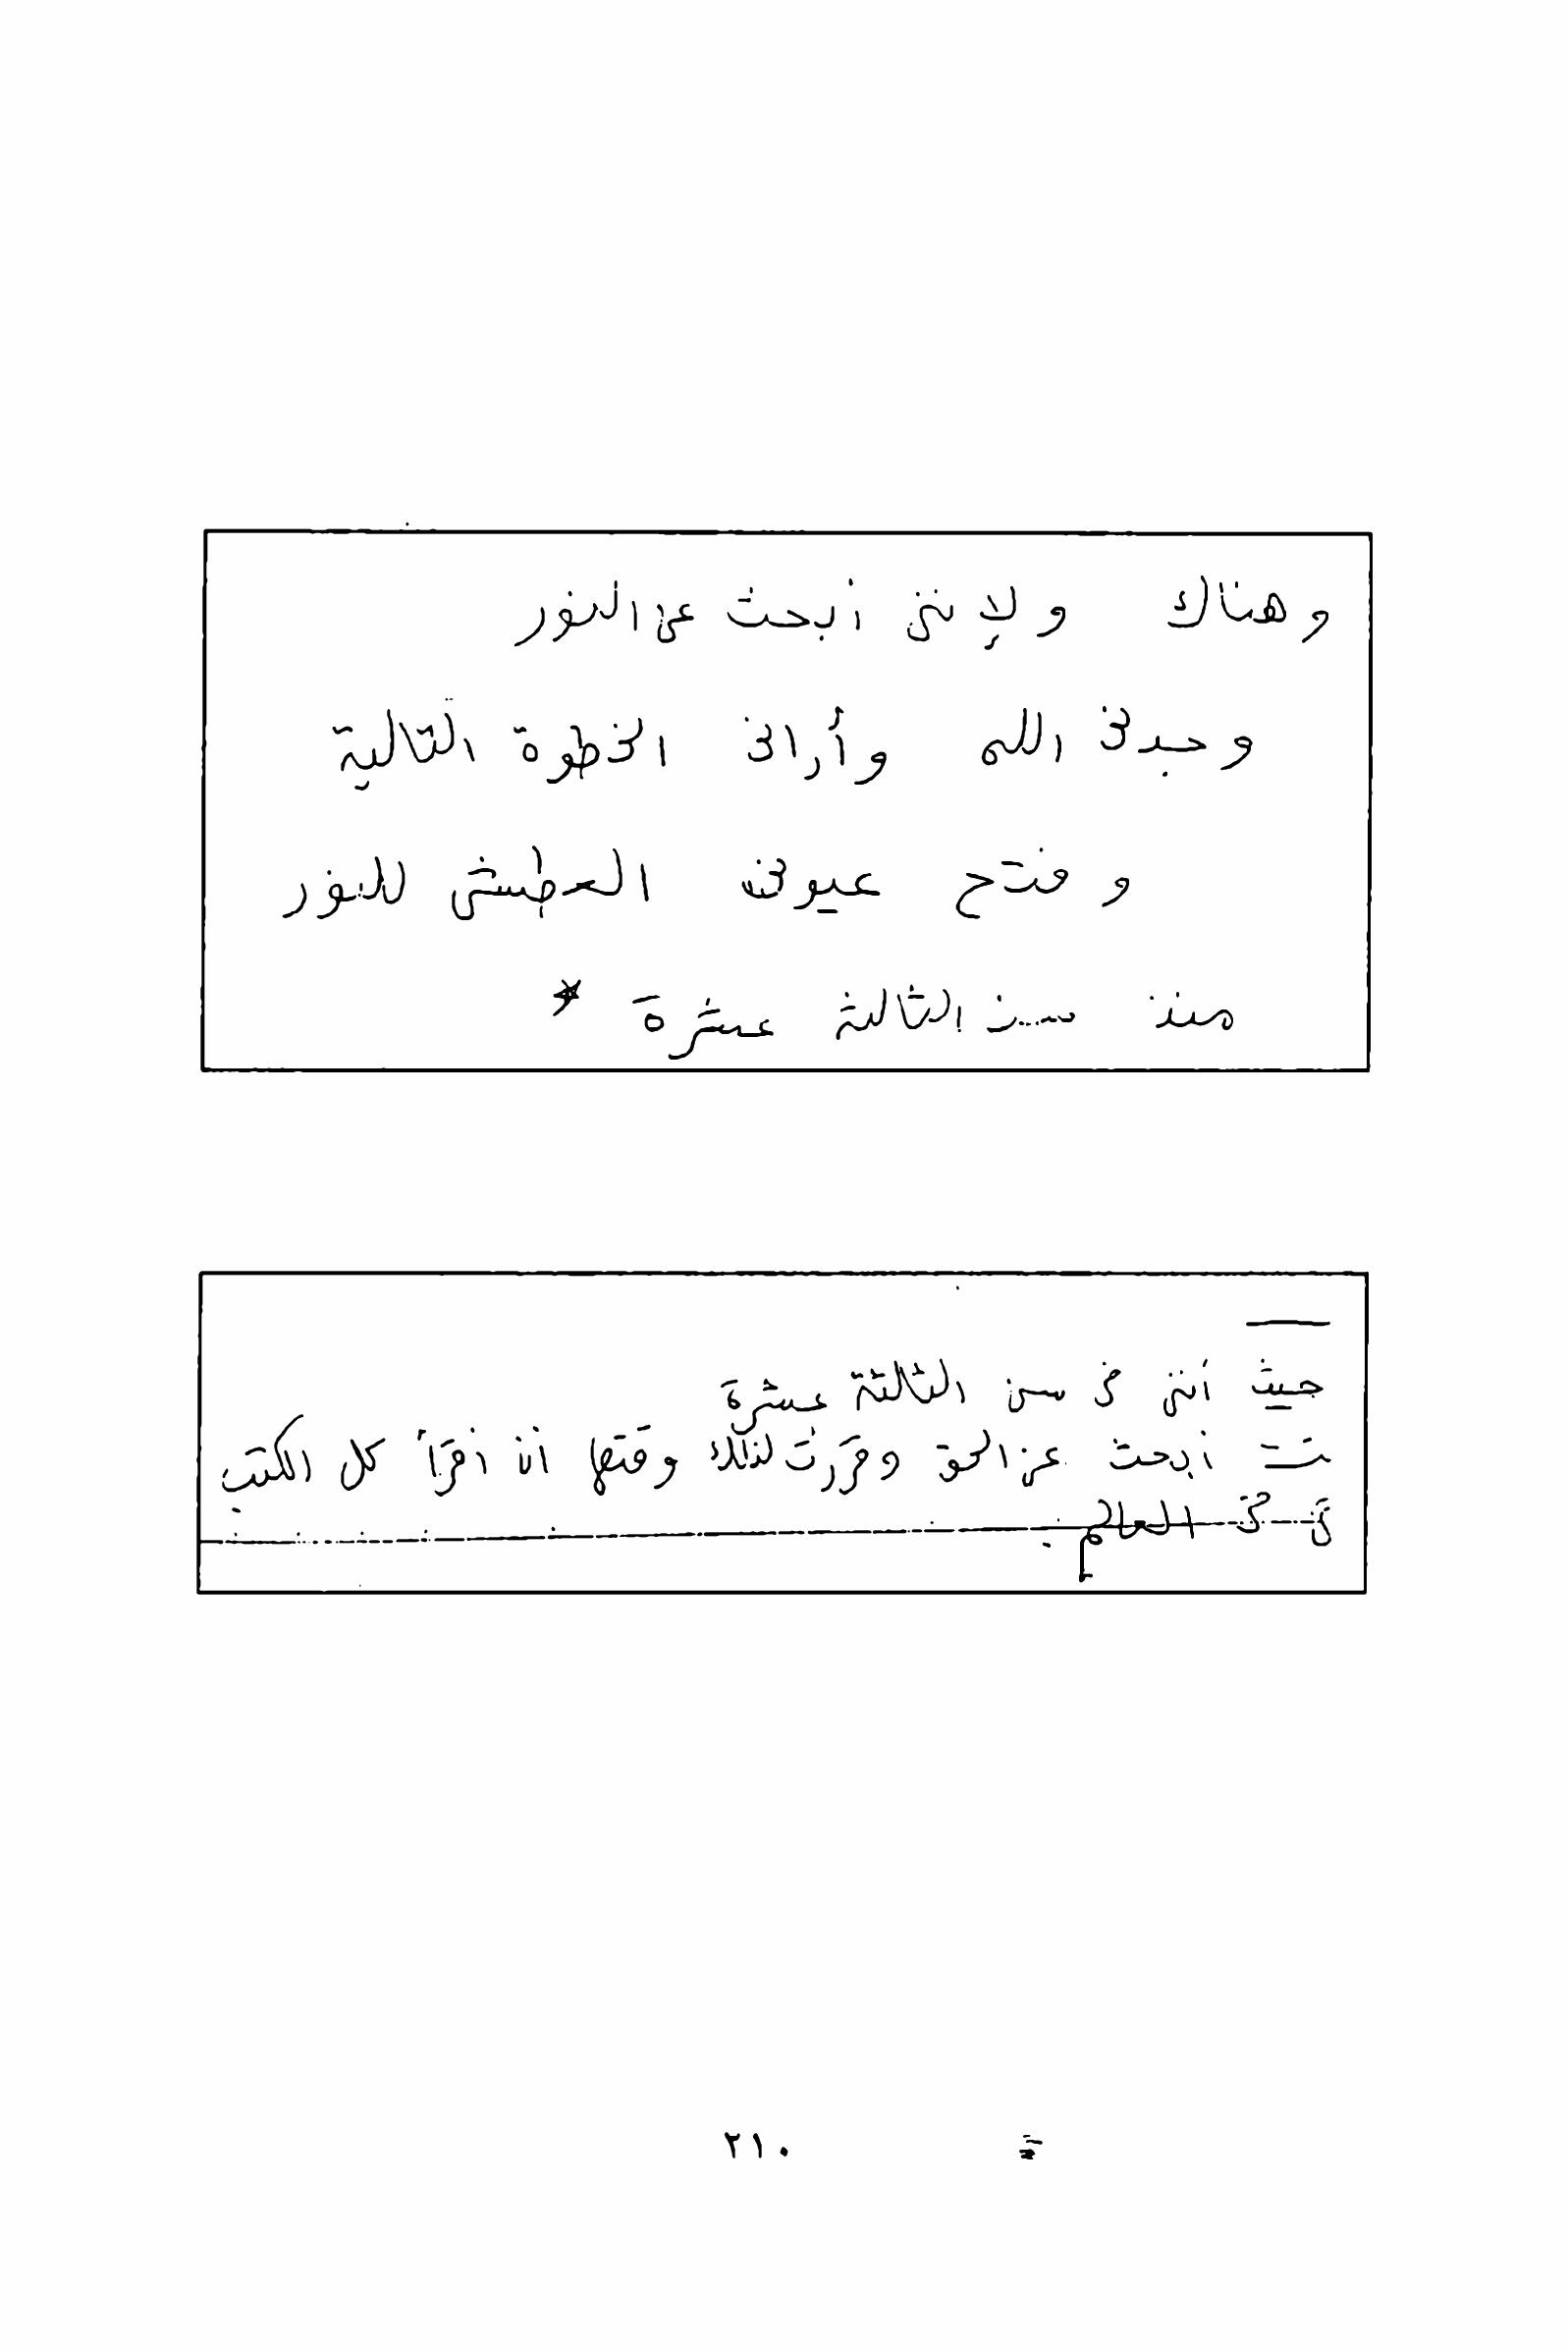 وهناك ولإنني أبحث عن النور
وجدني الله وأراني الخطوة التالية
وفتح عيوني العطشى للنور
منذ سن الثالثة عشرة *
حيث أنني في سن الثالثة عشرة
ت أبحث عن الحق وقررت لذلك وقتها أن أقرأ كل الكتب
في العالم.
٢١٠